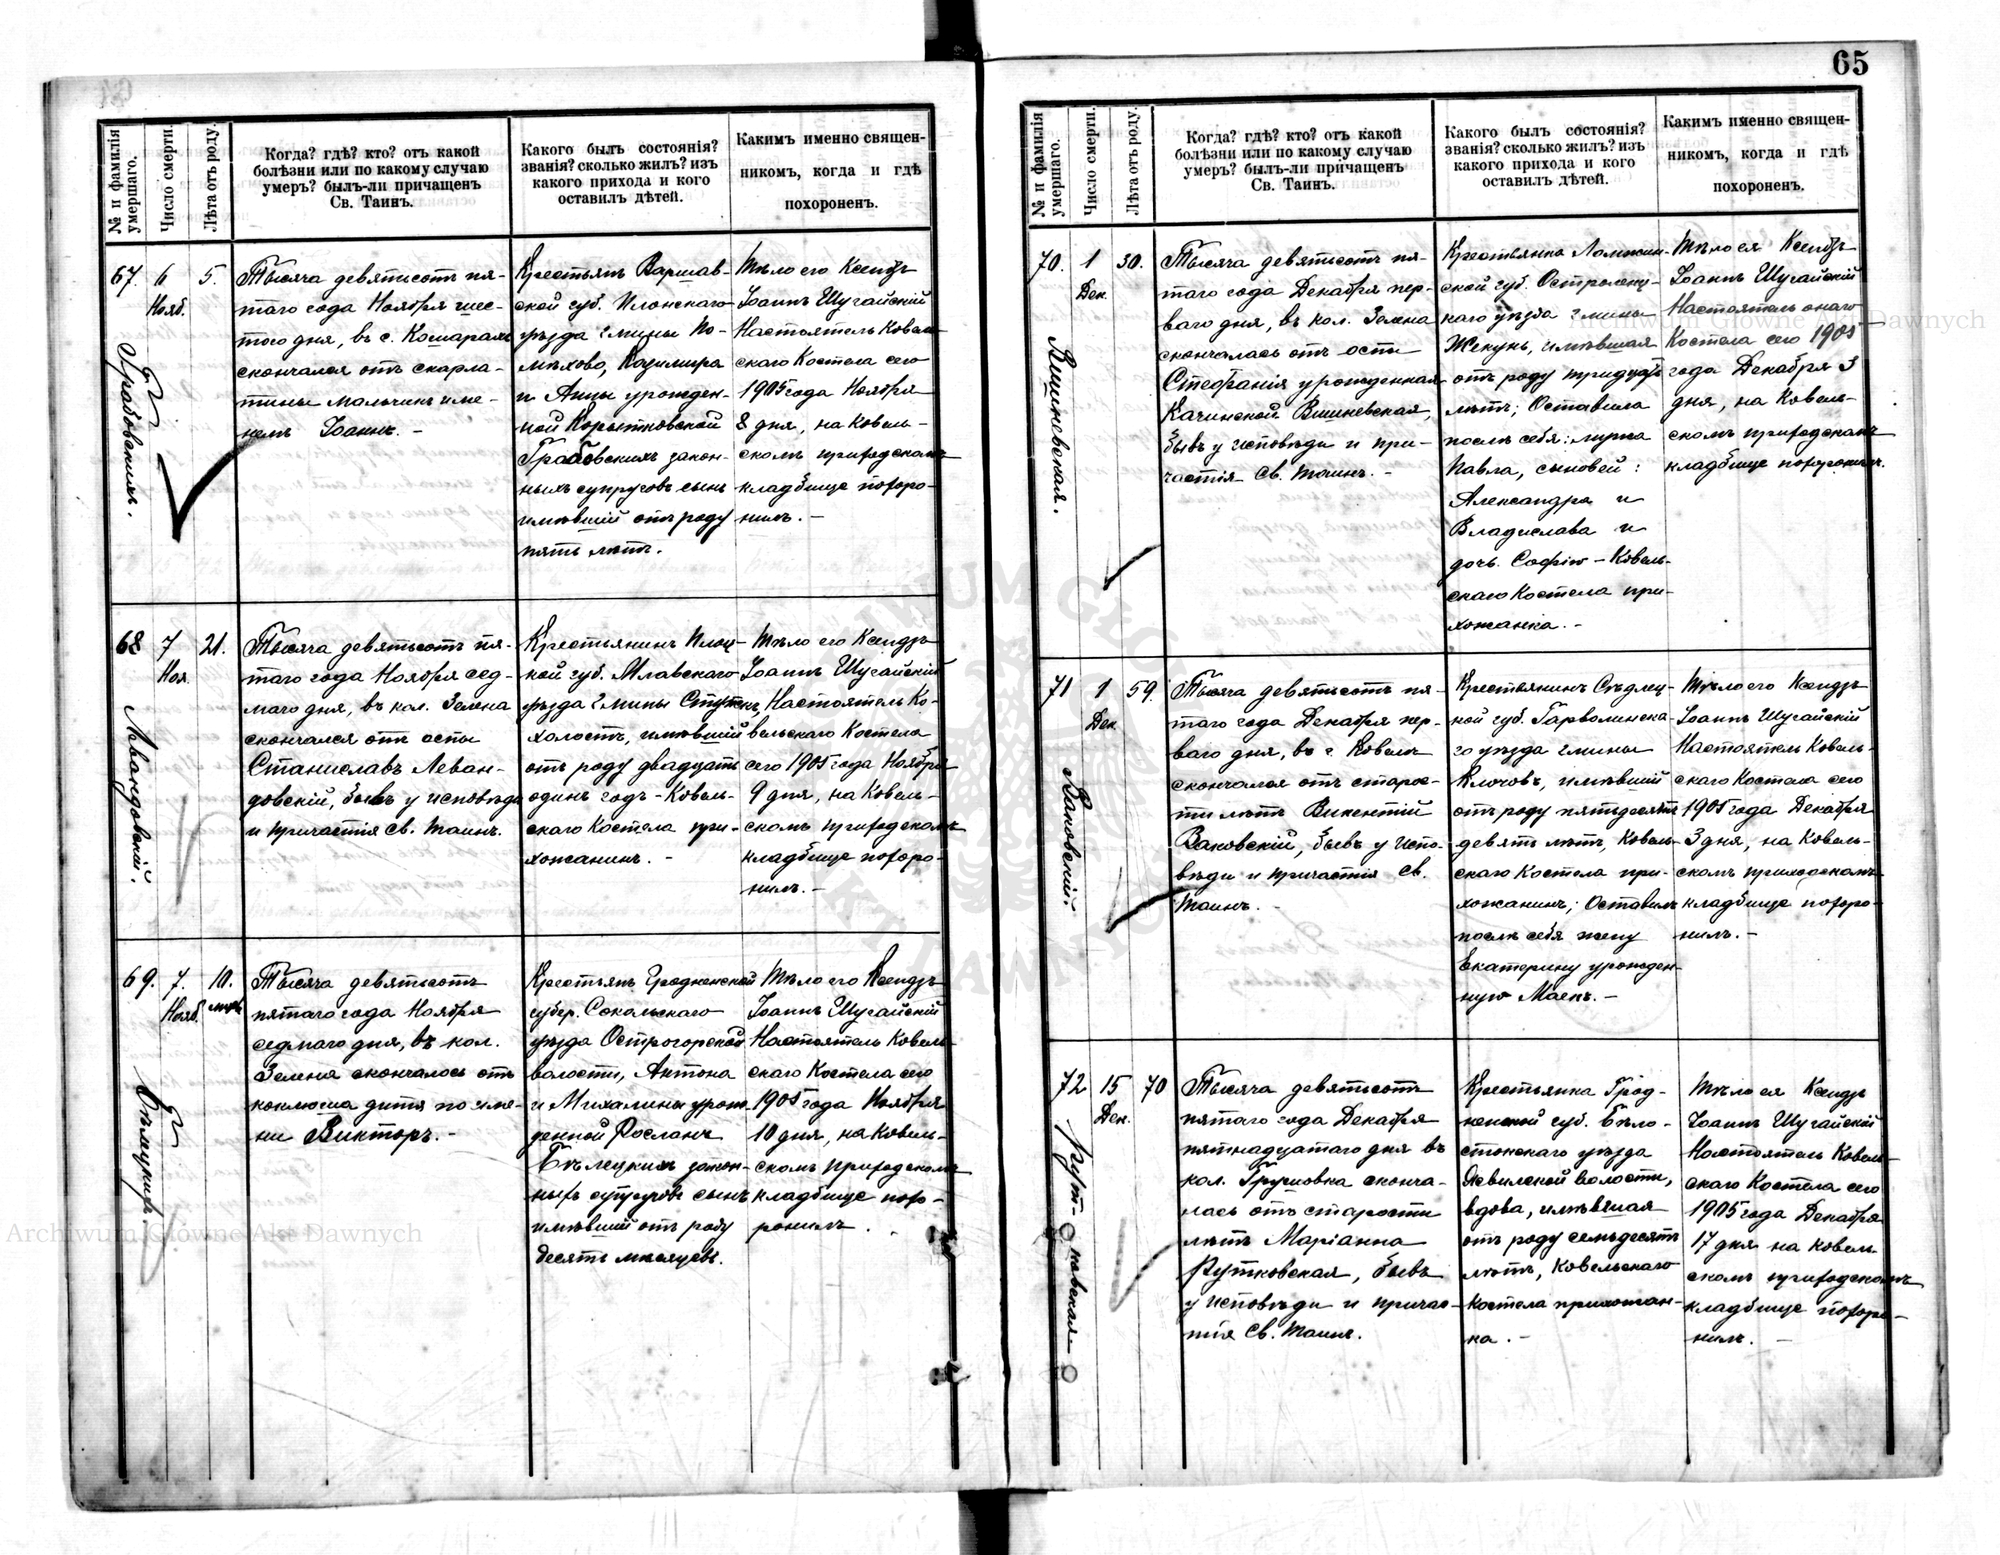 65
№ и фамилія умершаго.
Число смерти.
Лѣта отъ роду.
Когда? гдѣ? кто? отъ какой
болѣзни или по какому случаю
умеръ? былъ-ли причащенъ
Св. Таинъ.
Какого былъ состоянія?
званія? сколько жилъ? изъ
какого прихода и кого
оставилъ дѣтей.
Какимъ именно священ-
никомъ, когда и гдѣ
похороненъ.
67.
6
Нояб.
5.
Грабовскихъ.
Тысяча девятьсотъ пя-
таго года Ноября шес-
того дня, въ с. Кошарахъ
скончался отъ скарла-
тины мальчикъ име-
немъ Іоаннъ. -
Крестьянъ Варшав-
ской губ. Плонскаго
уѣзда гмины
Казимира
и Анны урожден-
ной Корытковской
Грабовскихъ закон-
ныхъ супруговъ сынъ
имѣвшій отъ роду
пять лѣтъ.
Тѣло его Ксендзъ
Іоаннъ Шугайскій
Настоятель Ковель-
скаго Костела сего
1905 года Ноября
8 дня, на Ковель-
скомъ пригородскомъ
кладбище похоро-
нилъ. -
68
7
Ноя.
21.
Левандовскій.
Тысяча девятьсотъ пя-
таго года Ноября сед-
маго дня, въ кол. Зелена
скончался отъ оспы
Станиславъ Леван-
довскій, бывъ у исповѣди
и причастія Св. Таинъ.
Крестьянинъ Плоц-
кой губ. Млавскаго
уѣзда гмины
холостъ, имѣвшій
отъ роду двадцать
одинъ годъ - Ковель-
скаго Костела при-
хожанинъ. -
Тѣло его Ксендзъ
Іоаннъ Шугайскій
Настоятель Ко-
вельскаго Костела
сего 1905 года Ноября
9 дня, на Ковель-
скомъ пригородскомъ
кладбище похоро-
нилъ. -
69.
7.
Нояб.
10.
мѣс.
Бѣлецкихъ.
Тысяча девятьсотъ
пятаго года Ноября
седмаго дня, въ кол.
Зеленя скончалось отъ
коклюша дитя по име-
ни Викторъ. -
Крестьянъ Гродненской
губер. Сокольскаго
уѣзда Острогорской
волости, Антона
и Михалины урож-
денной Росланъ
Бѣлецкихъ закон-
ныхъ супруговъ сынъ
имѣвшій отъ роду
десять мѣсяцевъ.
Тѣло его Ксендзъ
Іоаннъ Шугайскій
Настоятель Ковель-
скаго Костела сего
1905 года Ноября
10 дня, на Ковель-
скомъ пригородскомъ
кладбище похо-
ронилъ.
№ и фамилія умершаго.
Число смерти.
Лѣта отъ роду.
Когда? гдѣ? кто? отъ какой
болѣзни или по какому случаю
умеръ? былъ-ли причащенъ
Св. Таинъ.
Какого былъ состоянія?
званія? сколько жилъ? изъ
какого прихода и кого
оставилъ дѣтей.
Какимъ именно священ-
никомъ, когда и гдѣ
похороненъ.
70.
1
Дек.
30.
Вишневская.
Тысяча девятьсотъ пя-
таго года Декабря пер-
ваго дня, въ кол. Зелена
скончалась отъ оспы
Стефанія урожденная
Качинской Вишневская,
бывъ у исповѣди и при-
частія Св. Таинъ. -
Крестьянка Ломжин-
ской губ. Остроленц-
каго уѣзда гмины
Жекунь, имѣвшая
отъ роду тридцать
лѣтъ; Оставила
послѣ себя: мужа
Павла, сыновей:
Александра и
Владислава и
дочь Софію - Ковель-
скаго Костела при-
хожанка. -
Тѣло ея Ксендзъ
Іоаннъ Шугайскій
Настоятель онаго
Костела сего 1905
года Декабря 3
дня, на Ковель-
скомъ пригородскомъ
кладбище похоронилъ.
71
1
Дек.
59.
Ваковскій.
Тысяча девятьсотъ пя-
таго года Декабря пер-
ваго дня, въ г. Ковель
скончался отъ старос-
ти лѣтъ Викентій
Ваковскій, бывъ у испо-
вѣди и причастія Св.
Таинъ. -
Крестьянинъ Сѣдлец-
кой губ. Гарволинска-
го уѣзда гмины
Клочовъ, имѣвшій
отъ роду пятьдесятъ
девять лѣтъ, Ковель-
скаго Костела при-
хожанинъ; Оставилъ
послѣ себя жену
Екатерину урожден-
ную Маекъ. -
Тѣло его Ксендзъ
Іоаннъ Шугайскій
Настоятель Ковель-
скаго Костела сего
1905 года Декабря
3 дня, на Ковель-
скомъ пригородскомъ
кладбище похоро-
нилъ. -
72
15
Дек.
70
Рутковская
Тысяча девятьсотъ
пятаго года Декабря
пятнадцатаго дня въ
кол. Грушовка сконча-
лась отъ старости
лѣтъ Маріанна
Рутковская, бывъ
у исповѣди и причас-
тія Св. Таинъ.
Крестьянка Грод-
ненской губ. Бѣло-
стокскаго уѣзда
волости,
вдова, имѣвшая
отъ роду семьдесятъ
лѣтъ, Ковельскаго
Костела прихожан-
ка. -
Тѣло ея Ксендзъ
Іоаннъ Шугайскій
Настоятель Ковель-
скаго Костела сего
1905 года Декабря
17 дня на Ковель-
скомъ пригородскомъ
кладбище похоро-
нилъ. -
Archiwum Główne Akt Dawnych
Archiwum Główne Akt Dawnych
ARCHIWUM GŁÓWNE AKT DAWNYCH